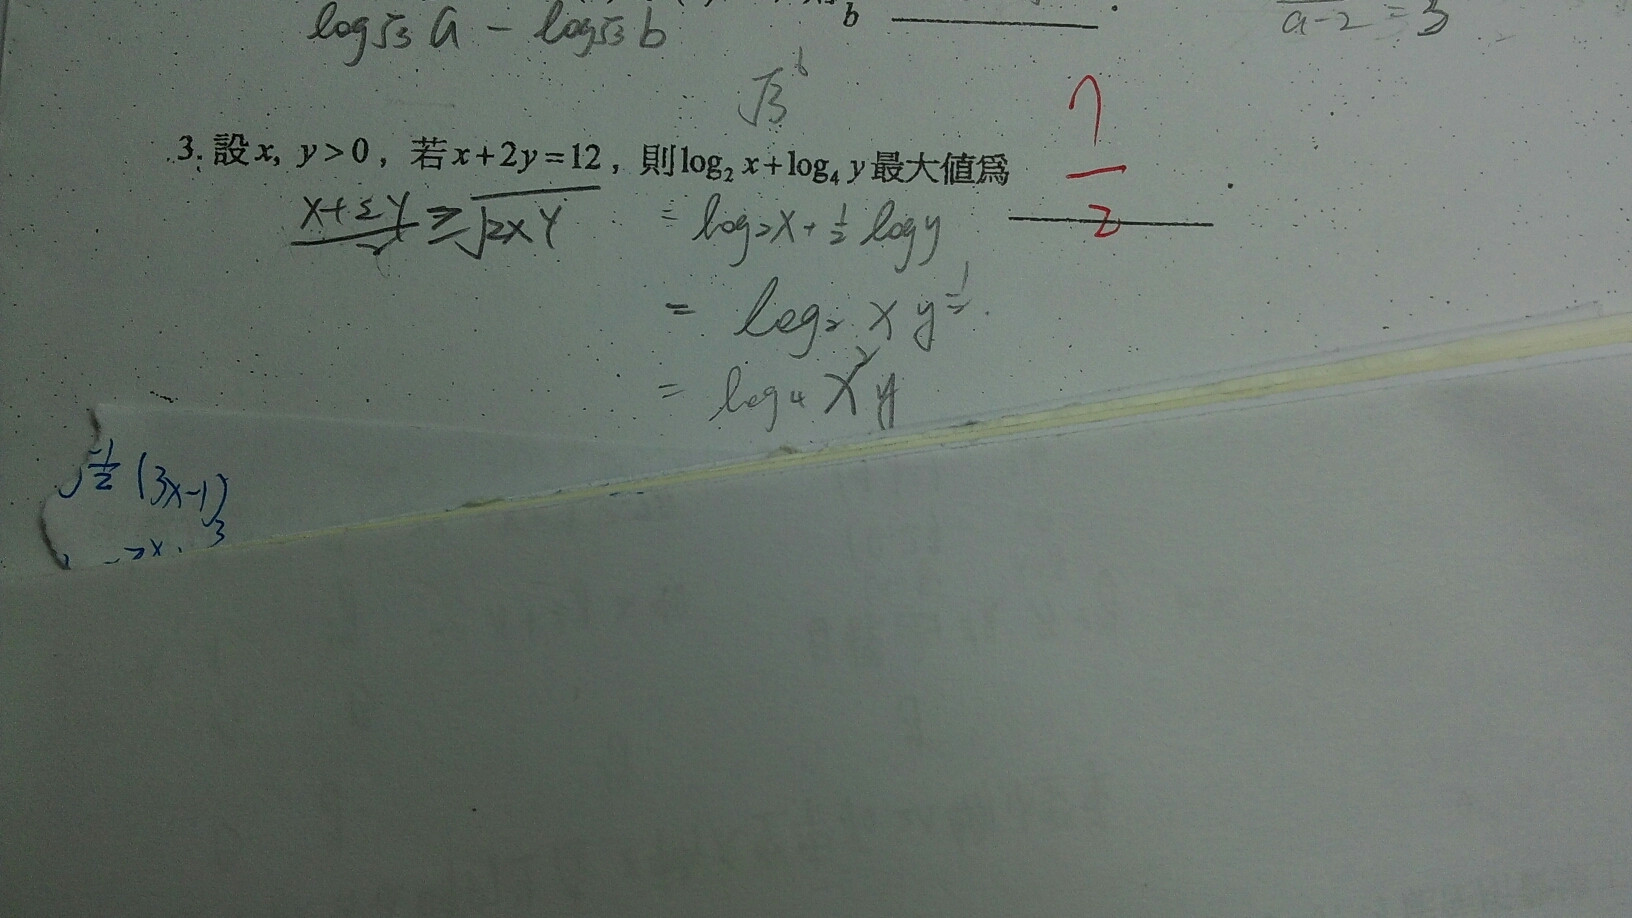 log√3 a - log√3 b
b
a-2 = 3
√3^b
3. 設 x, y>0，若 x+2y=12，則 log₂ x+log₄ y 最大值為 7/2.
(x+2y)/2 ≥ √2xy
= log₂x + ½ log y
= log₂ x y^½
= log₄ x²y
½ (3x-1)